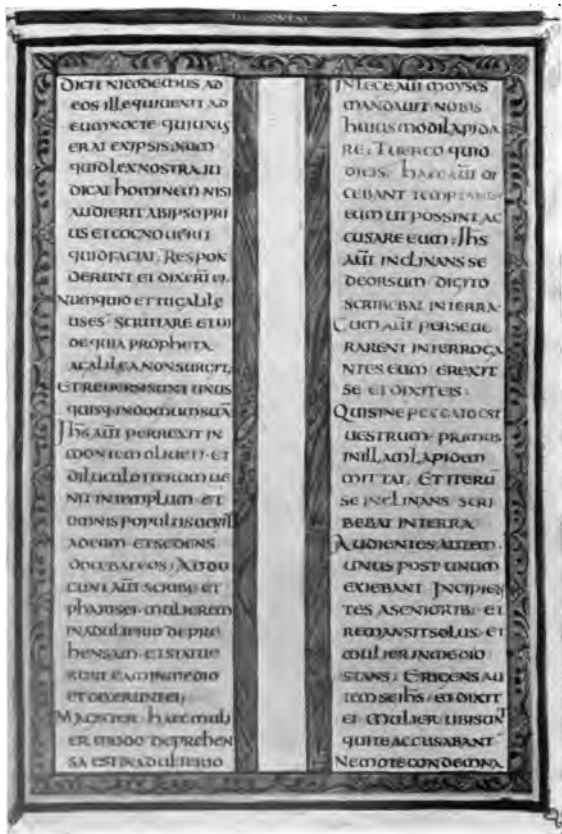 DICIT NICODEMUS AD
EOS ILLE QUI UENIT AD
EUM NOCTE QUI UNUS
ERAT EX IPSIS NUM
QUID LEX NOSTRA IU
DICAT HOMINEM NISI
AUDIERIT AB IPSO PRI
US ET COGNOUERIT
QUID FACIAT; RESPON
DERUNT ET DIXERUNT EI
NUMQUID ET TU GALILE
US ES SCRUTARE ET UI
DE QUIA PROPHETA
A GALILEA NON SURGIT;
ET REUERSI SUNT UNUS
QUISQ· IN DOMUM SUĀ
IHS AUT̄ PERREXIT IN
MONTEM OLIUETI· ET
DILUCULO ITERUM UE
NIT IN TEMPLUM· ET
OMNIS POPULUS UENIT
AD EUM· ET SEDENS
DOCEBAT EOS; ADDU
CUNT AUT̄ SCRIBE ET
PHARISEI MULIEREM
IN ADULTERIO DEPRE
HENSAM· ET STATUE
RUNT EAM IN MEDIO
ET DIXERUNT EI;
MAGISTER HAEC MULI
ER MODO DEPREHEN
SA EST IN ADULTERIO
IN LEGE AUT̄ MOYSES
MANDAUIT NOBIS
HUIUSMODI LAPIDA
RE; TU ERGO QUID
DICIS; HAEC AUT̄ DI
CEBANT TEMPTANTES
EUM UT POSSINT AC
CUSARE EUM; IHS
AUT̄ INCLINANS SE
DEORSUM· DIGITO
SCRIBEBAT IN TERRA·
CUM AUT̄ PERSEUE
RARENT INTERROGA
NTES EUM EREXIT
SE ET DIXIT EIS·
QUI SINE PECCATO EST
UESTRUM· PRIMUS
IN ILLAM LAPIDEM
MITTAT· ET ITERŪ
SE INCLINANS SCRI
BEBAT IN TERRA·
AUDIENTES AUTEM·
UNUS POST UNUM
EXIEBANT INCIPIEN
TES A SENIORIB; ET
REMANSIT SOLUS· ET
MULIER IN MEDIO
STANS; ERIGENS AU
TEM SE IHS· ET DIXIT
EI· MULIER UBI SUNT
QUI TE ACCUSABANT
NEMO TE CONDEMNA